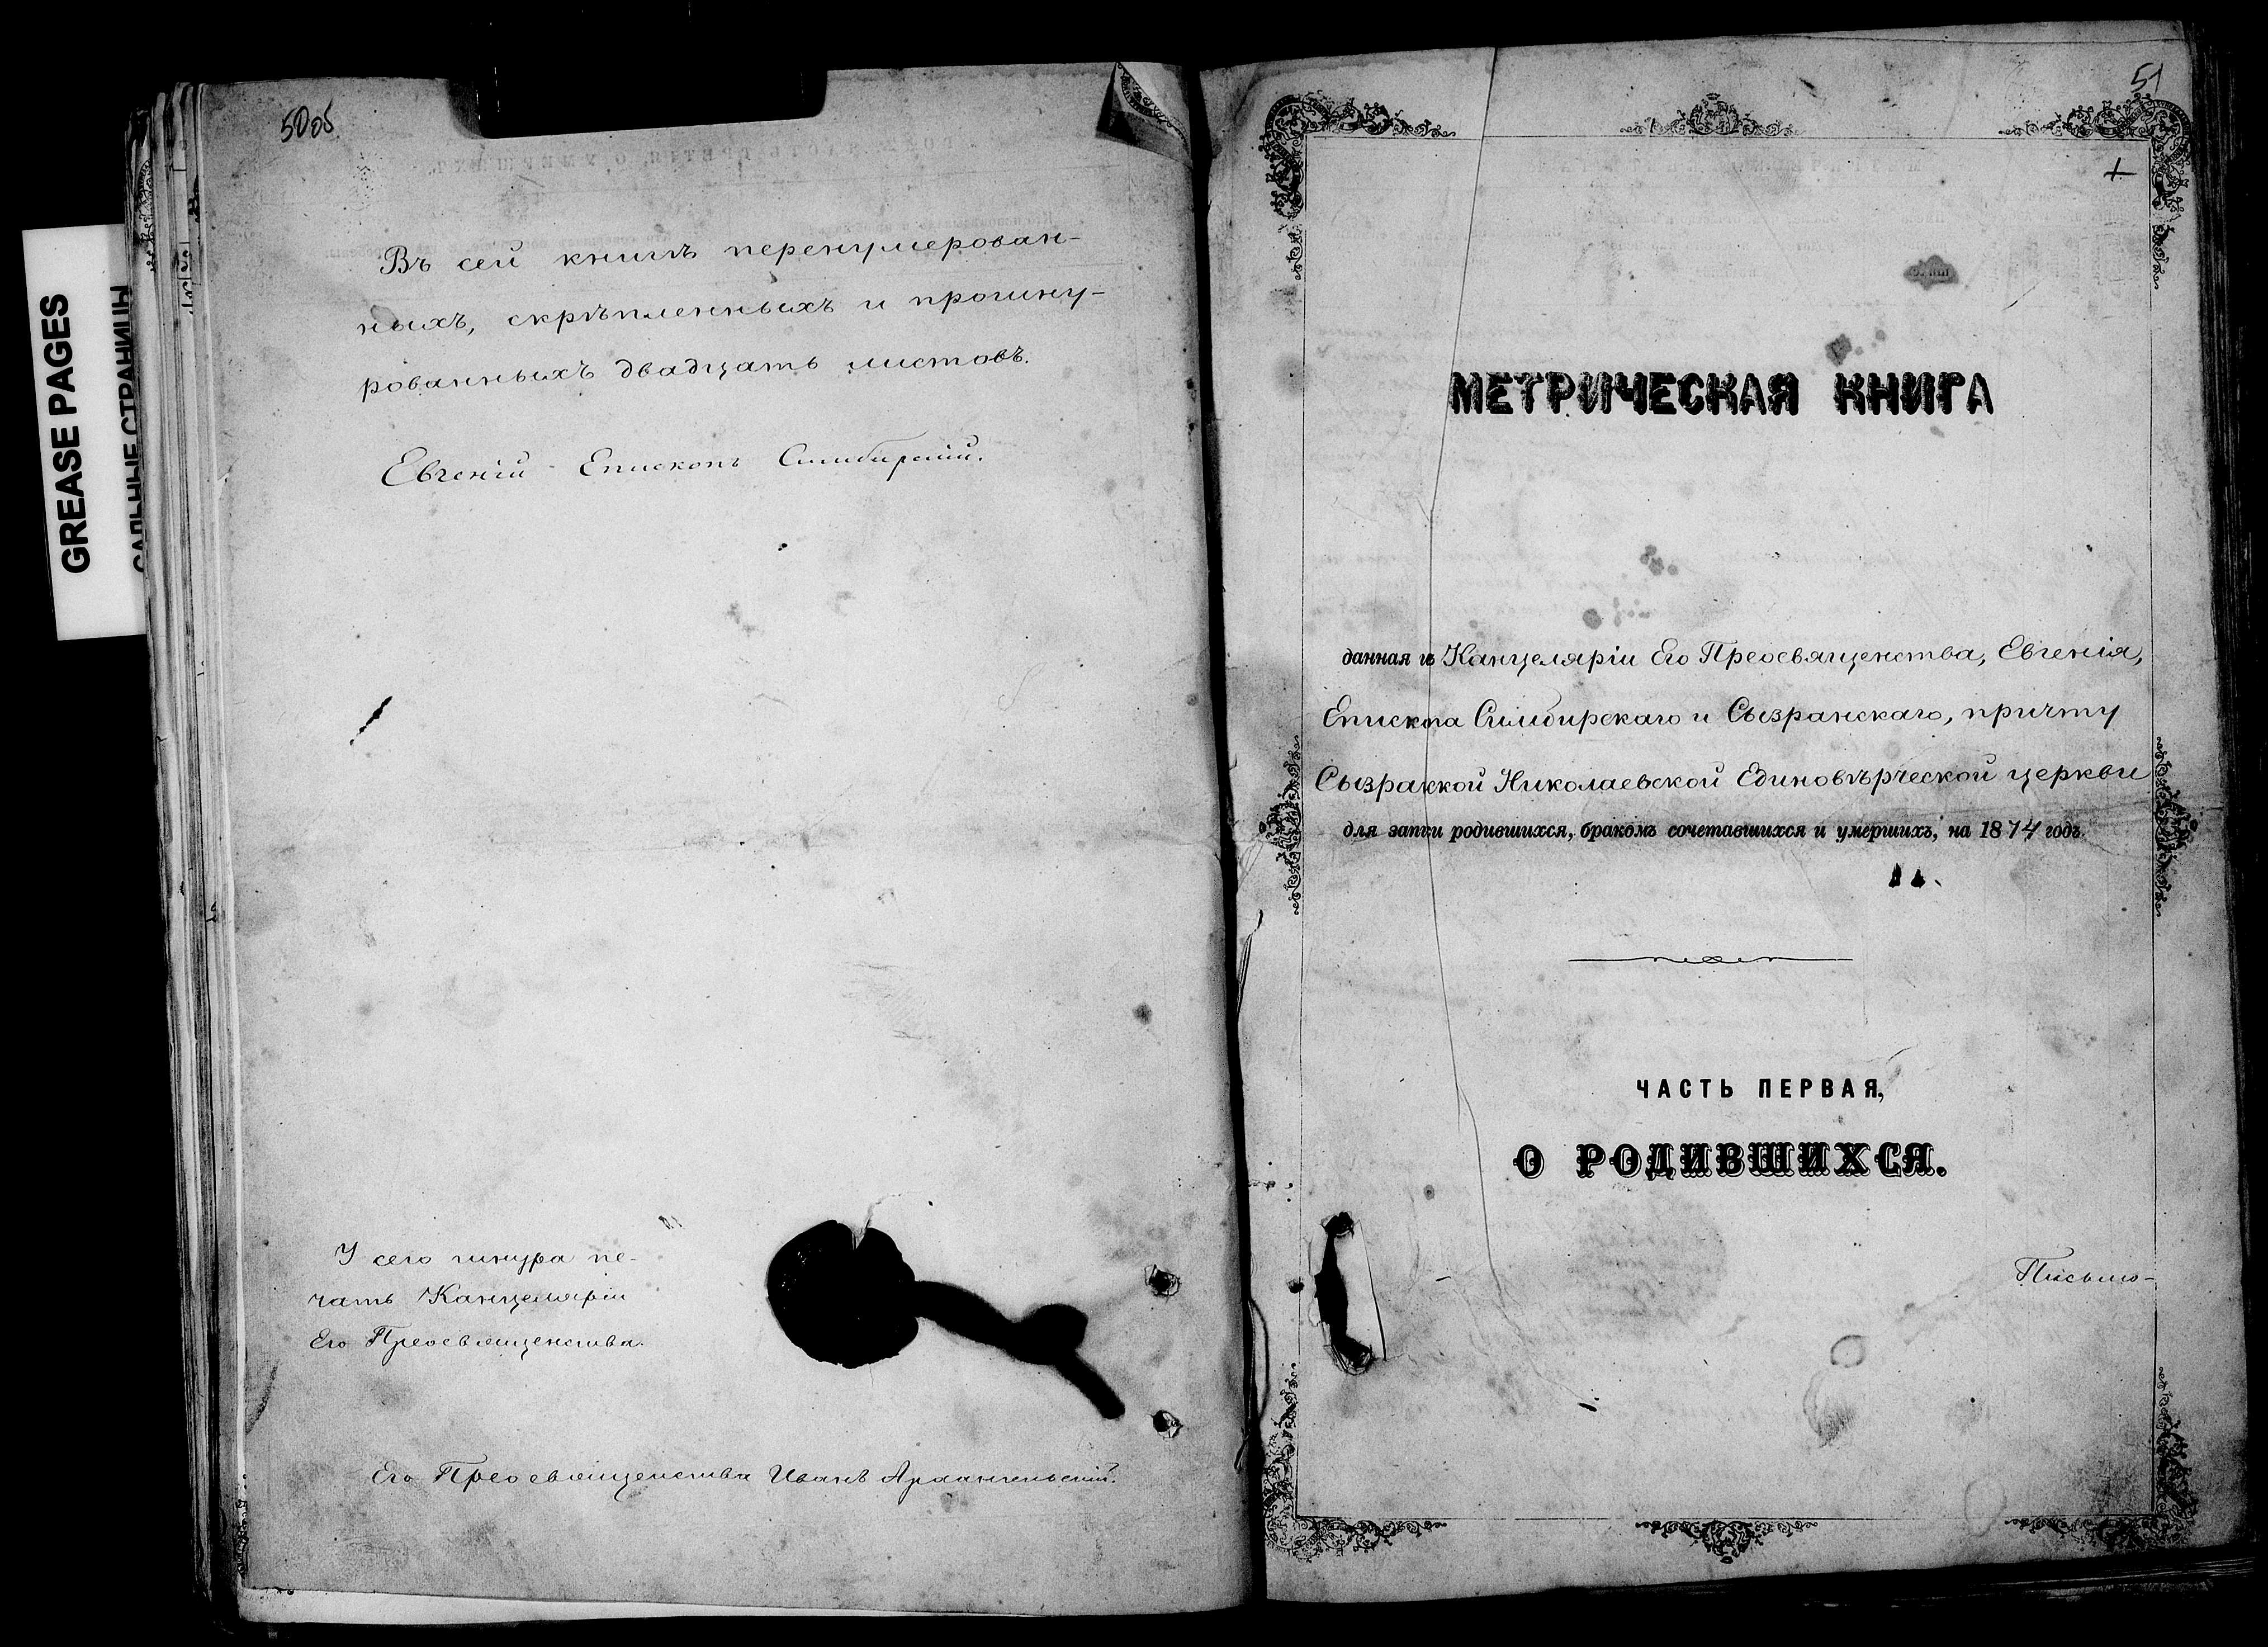 50об
GREASE PAGES
САЛЬНЫЕ СТРАНИЦЫ
Въ сей книгѣ перенумерован-
ныхъ, скрѣпленныхъ и прошну-
рованныхъ двадцать листовъ.
Евгеній Епископъ Симбирскій.
У сего шнура пе-
чать Канцеляріи
Его Преосвященства.
Его Преосвященства Иванъ Архангельскій.
51
МЕТРИЧЕСКАЯ КНИГА
данная изъ Канцеляріи Его Преосвященства, Евгенія,
Епископа Симбирскаго и Сызранскаго, причту
Сызранской Николаевской Единовѣрческой церкви
для записи родившихся, бракомъ сочетавшихся и умершихъ, на 1874 годъ.
ЧАСТЬ ПЕРВАЯ,
О РОДИВШИХСЯ.
Письмо-